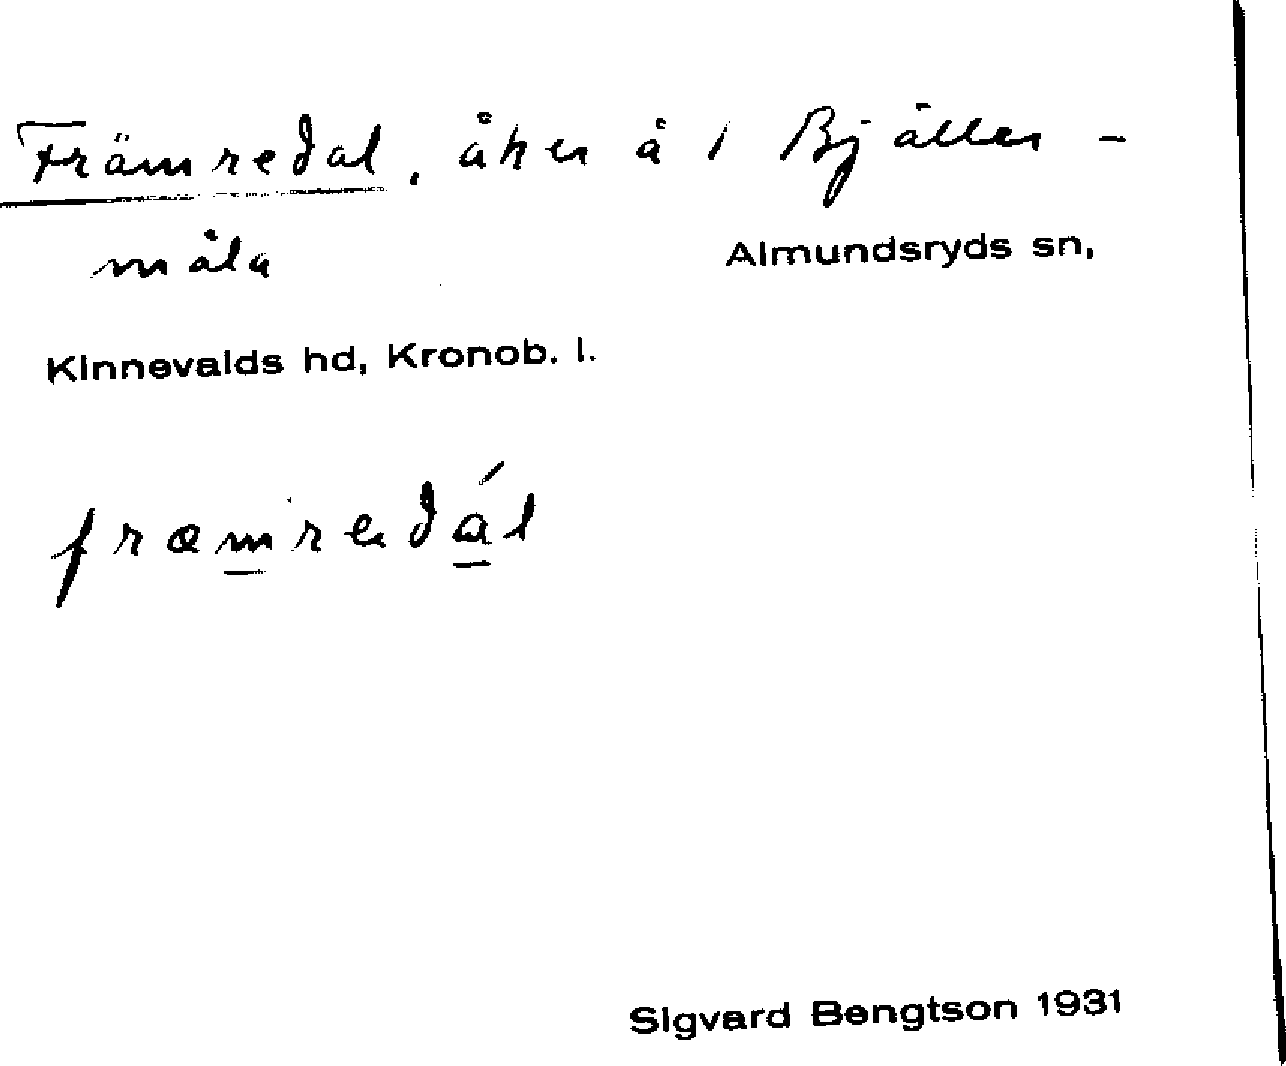 Främredal, åker å 1 Bjäller-
måla
Almundsryds sn,
Kinnevalds hd, Kronob. l.
fræmredál
Sigvard Bengtson 1931